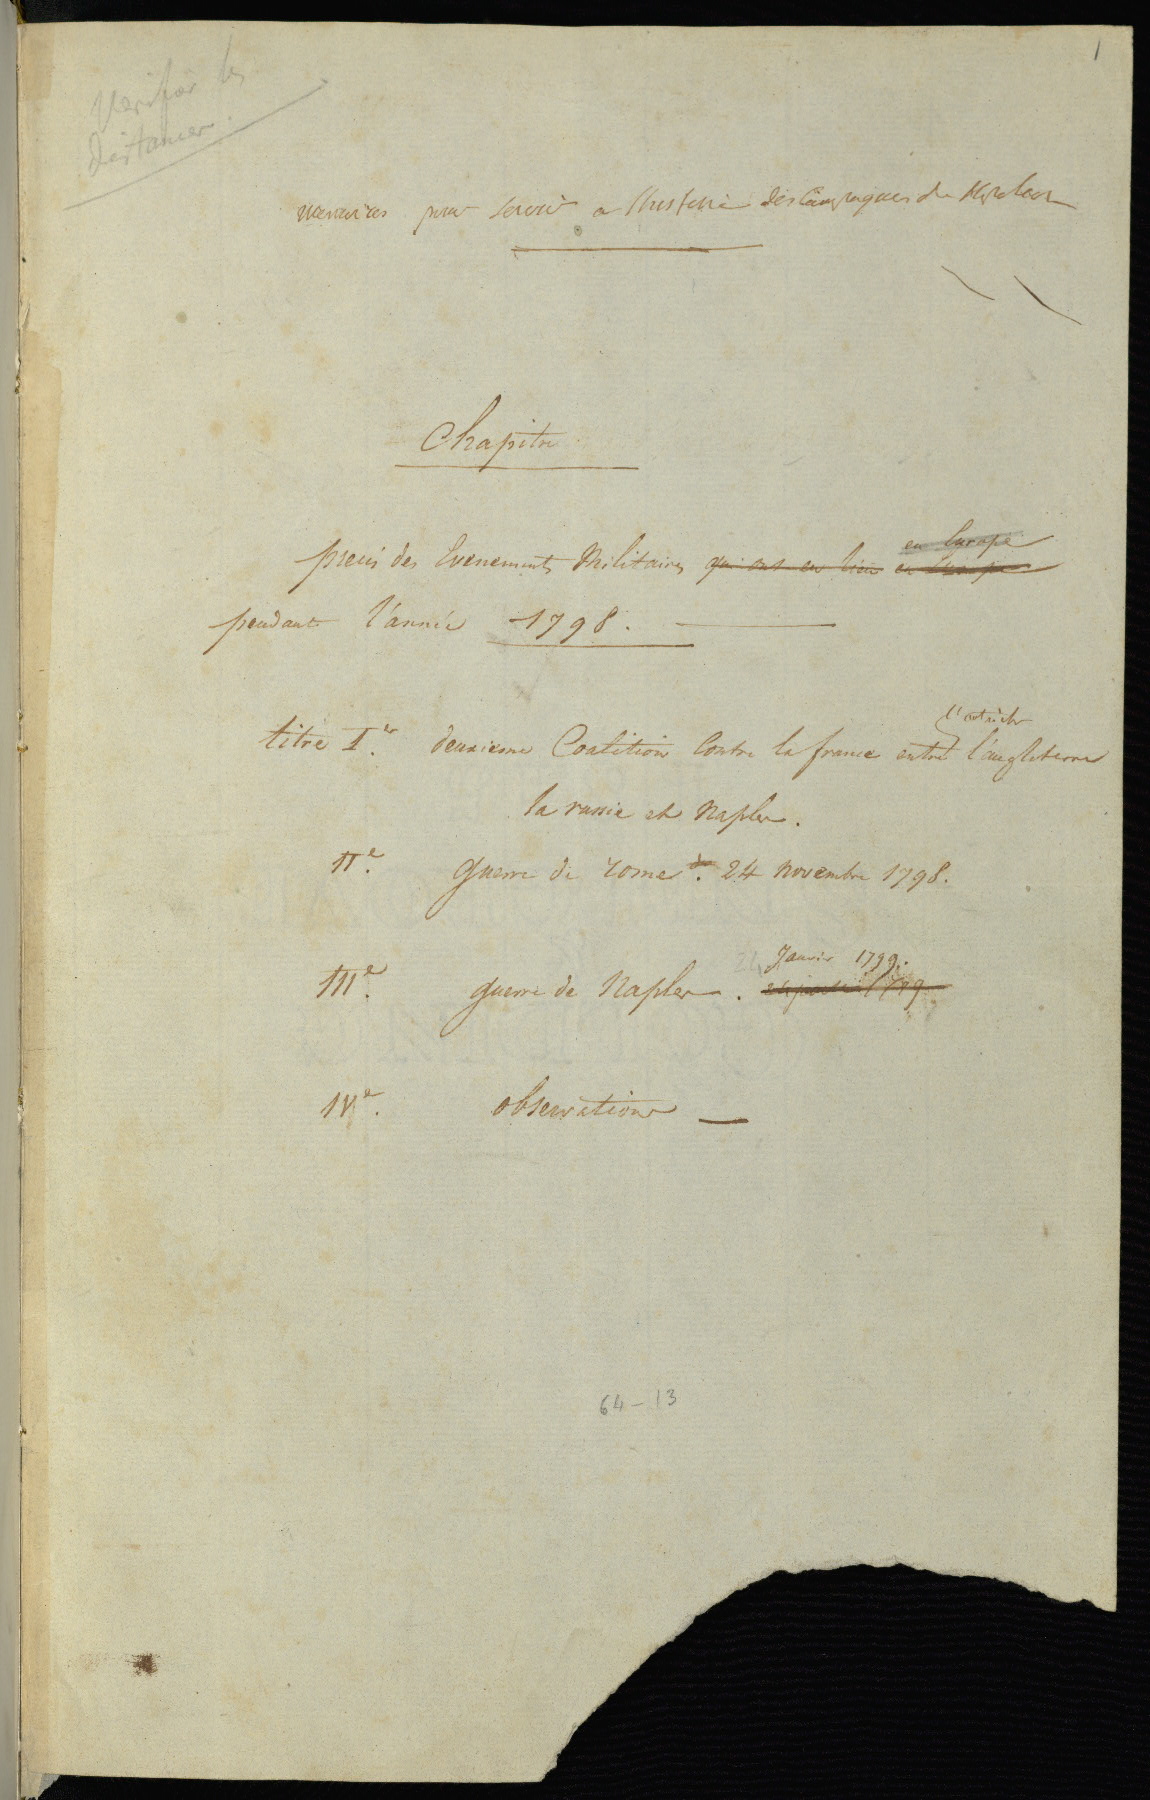 1
Verifier les
distances.
memoires pour servir a l'histoire des Campagnes de Napoleon
Chapitre
en Europe
precis des Evenements Militaires qui ont eu lieu en Europe
pendant l'année 1798.
l'autriche
titre I.er deuxieme Coalition Contre la france entre l'angleterre
la russie et Naples.
II.e guerre de rome. 24 novembre 1798.
Janvier 1799.
III.e guerre de Naples. 1799
IV.e observations
64-13